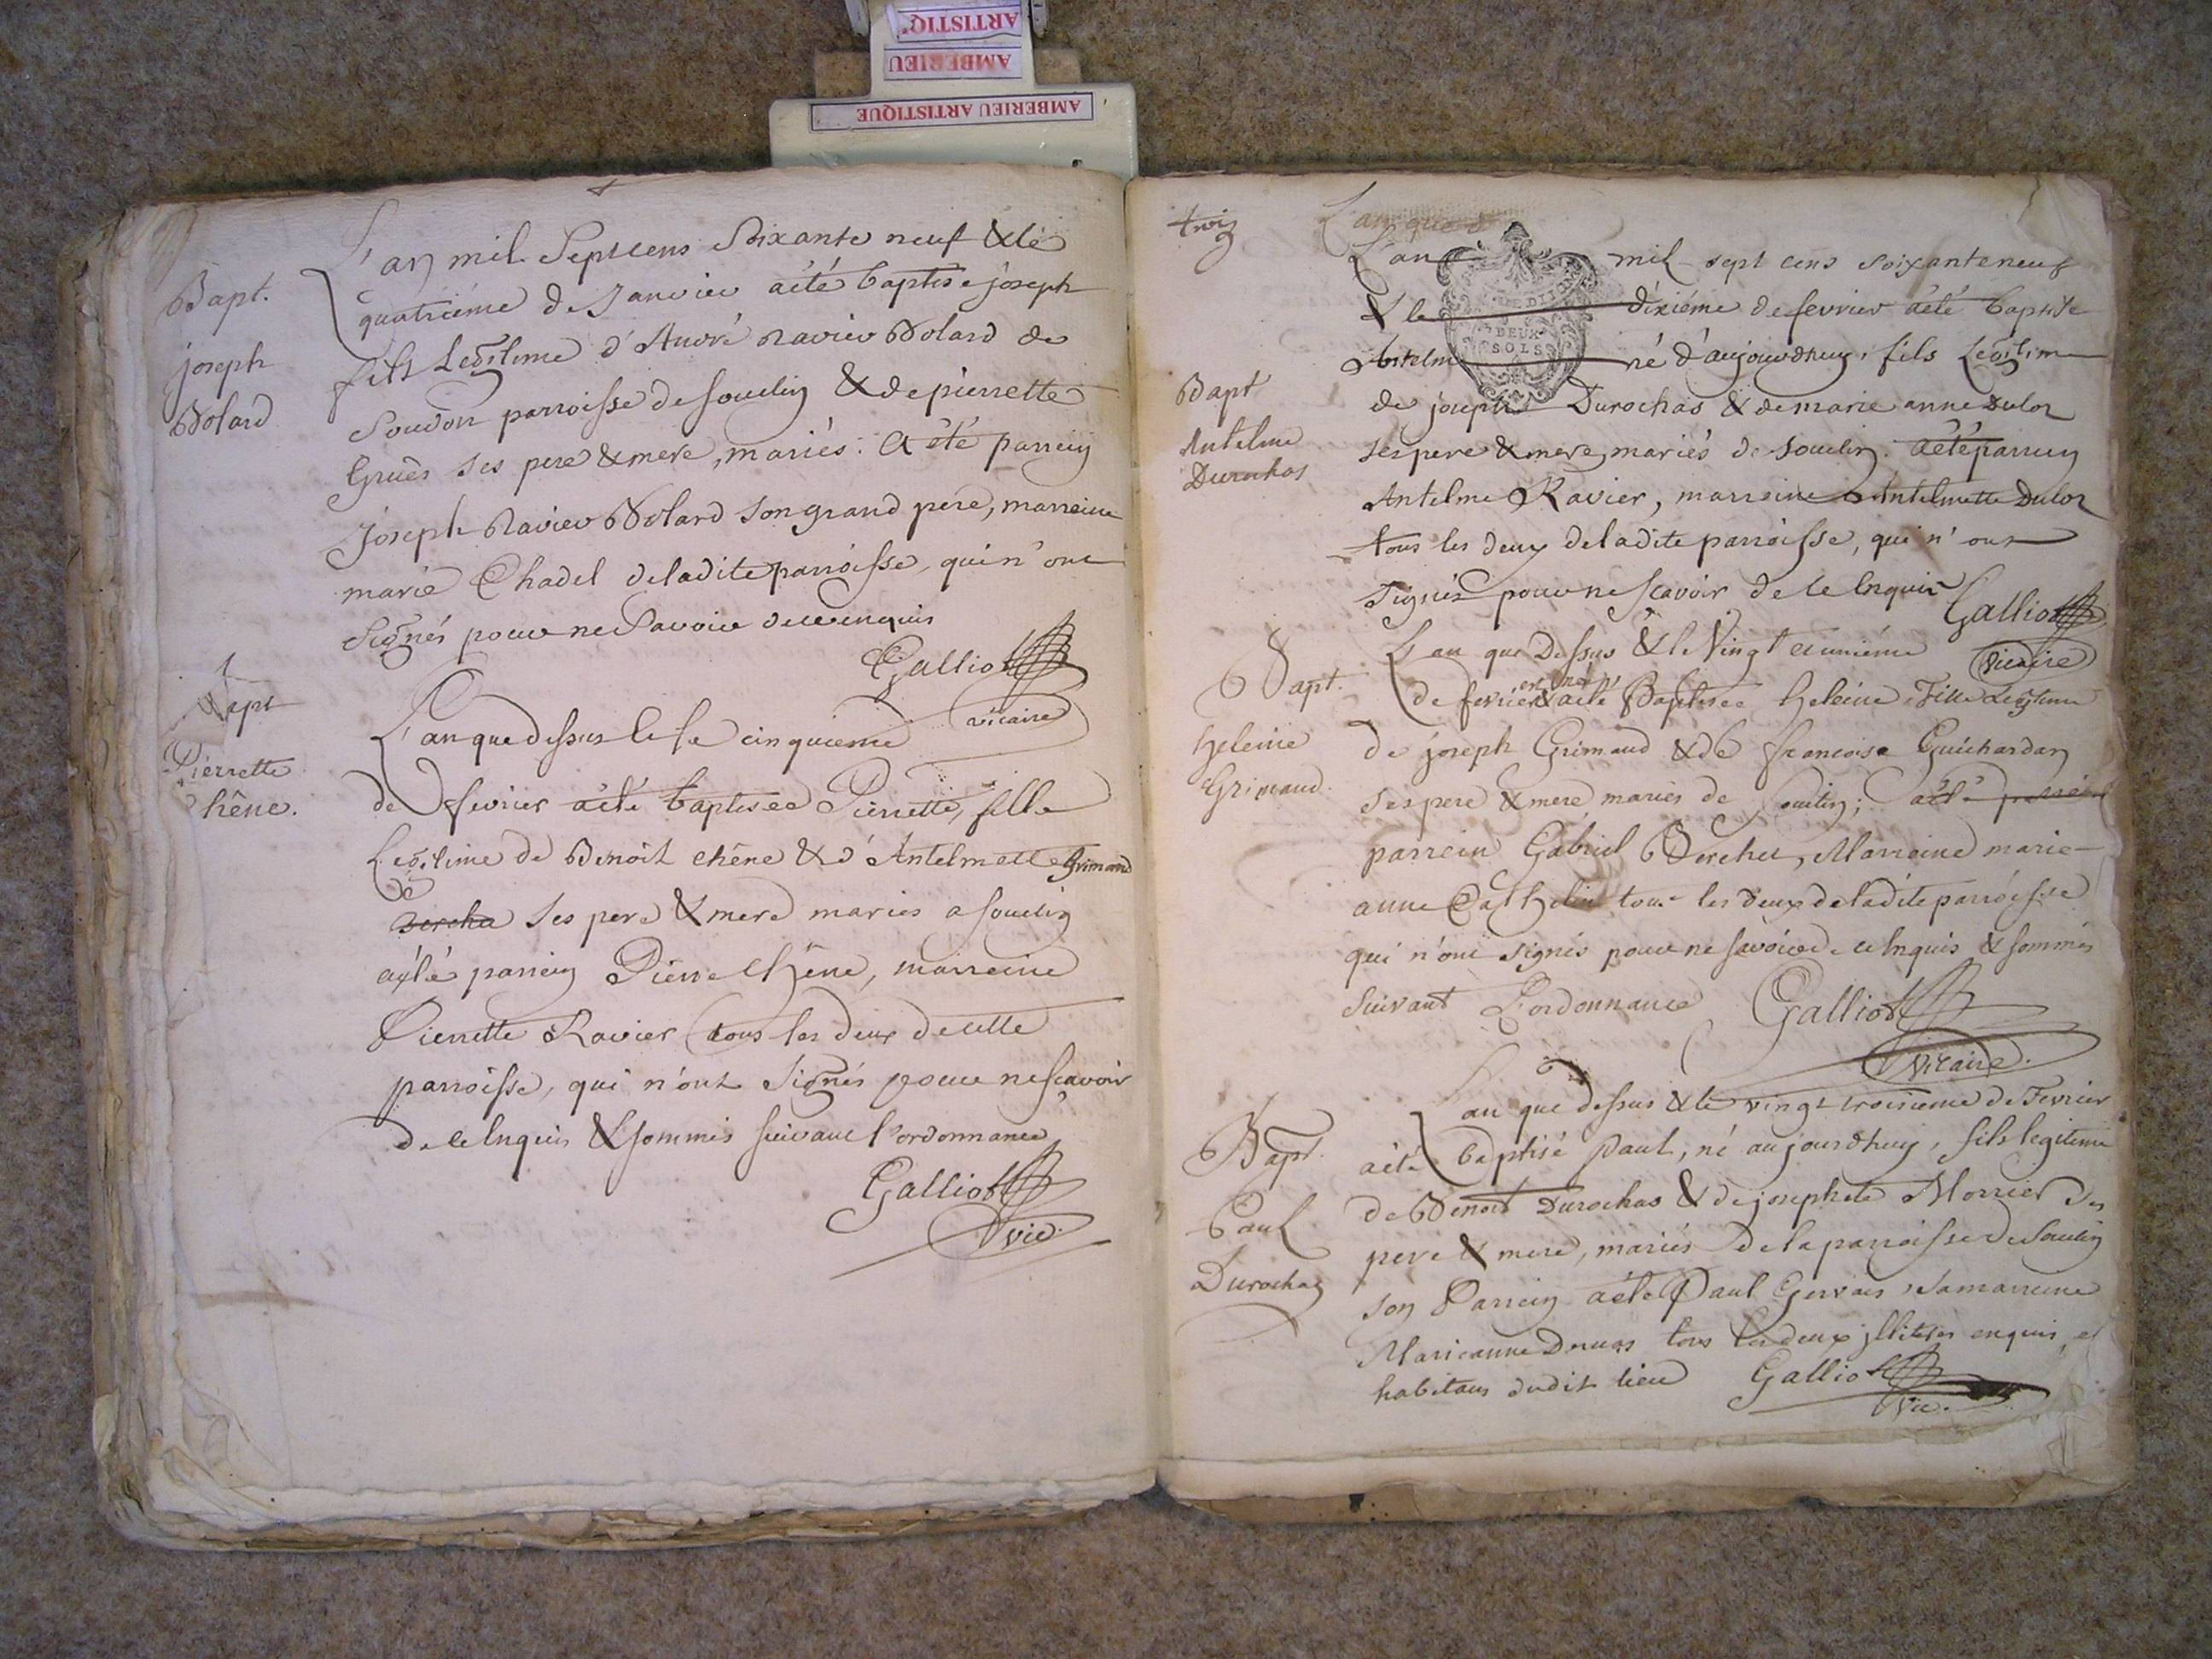 ARTISTIQ
AMBERIEU
AMBERIEU ARTISTIQUE
L'an mil Septcens Soixante neuf & le
quatriéme de Janvier a été baptisé joseph
fils Legitime d'André Ravier Bolard de
Soudon parroisse de souclin & de pierrette
ses pere & mere, mariés: a été parrein
Joseph Ravier Bolard son grand pere, marreine
marie Chadel de ladite parroisse, qui n'ont
Signés pour ne Savoir de ce enquis
Galliot
vicaire
Bapt.
joseph
Bolard
L'an que dessus & le cinquieme
de fevrier a été baptisée Pierrette, fille
Legitime de Benoit chêne & d'Antelmette Grimand
bercha ses pere & mere mariés a souclin
a été parrein Pierre Chêne, marreine
Pierrette Ravier tous les deux de cette
parroisse, qui n'ont Signés pour ne sçavoir
de ce Enquis & sommés suivant l'ordonnance
Galliot
vic.
Bapt
Pierrette
chêne.
trois
L'an que d
L'an mil sept cens soixante neuf
& le dixiéme de fevrier a été baptisé
Antelme né d'aujourdhuy, fils Legitime
de joseph Durochas & de marie anne Dulor
ses pere & mere mariés de souclin. a été parrein
Antelme Ravier, marreine Antelmette Dulor
tous les deux de ladite parroisse, qui n'ont
signés pour ne scavoir de ce Enquis
Galliot
vicaire
DEUX
SOLS
Bapt
Antelme
Durochas
L'an que Dessus & le Vingt et unième
de fevrier est née & a été Baptisée heleine Fille Legitime
de joseph Grimaud & de francoise Guichardan
ses pere & mere mariés de souclin; a été parrein
parrein Gabriel Berchet, Marreine marie
anne Cathelin tous les deux de ladite parroisse
qui n'ont signés pour ne savoir de ce Enquis & sommés
suivant L'ordonnance Galliot
vicaire.
Bapt.
heleine
Grimaud.
L'an que dessus & le vingt troisieme de Fevrier
a été baptisé paul, né aujourdhuy, fils legitime
de Benoit Durochas & de josephete Morrier ses
pere & mere, mariés de la parroisse de Souclin
son Parrein a été Paul Gervais, sa marreine
Marieanne tous les deux jlliteres enquis, et
habitans dudit lieu Galliot
vic.
Bapt.
Paul
Durochas